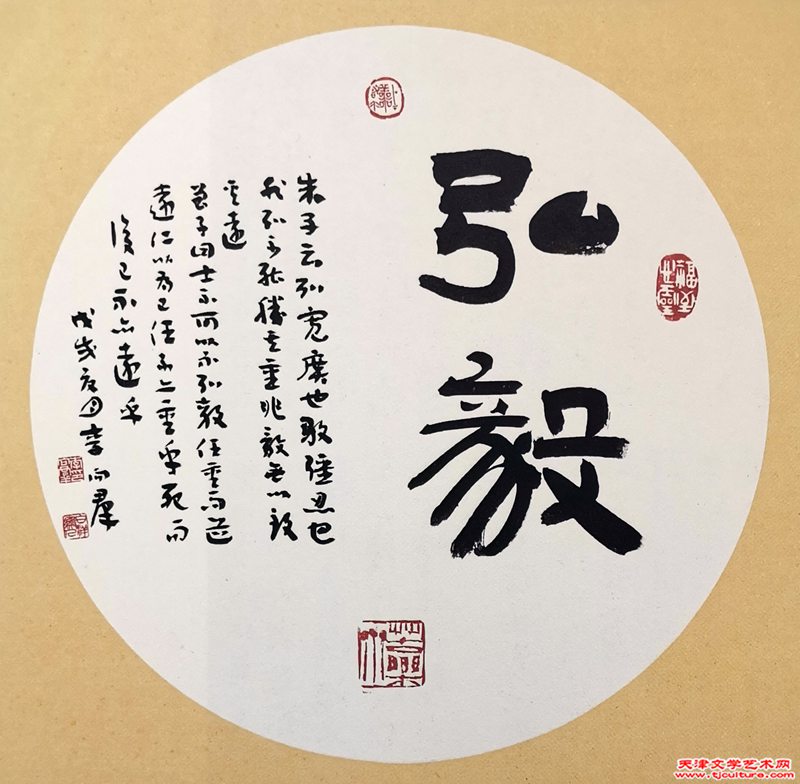 弘毅
朱子云弘寬廣也毅強忍也
非弘不能勝其重非毅無以致
其遠
曾子曰士不可以不弘毅任重而道
遠仁以為己任不亦重乎死而
後已不亦遠乎
戊戌夏月李向群
天津文学艺术网
www.tjculture.com